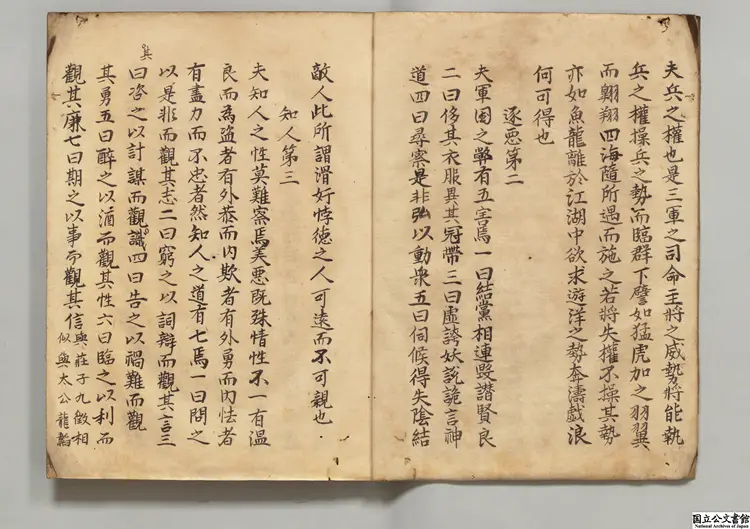 夫兵之權也是三軍之司命主將之威勢將能執
兵之權操兵之勢而臨群下譬如猛虎加之羽翼
而翺翔四海隨所遇而施之若將失權不操其勢
亦如魚龍離於江湖中欲求遊洋之勢奔濤戲浪
何可得也
逐悪第二
夫軍國之弊有五害焉一曰結黨相連毀譖賢良
二曰侈其衣服異其冠帶三曰虛誇妖說詭言神
道四曰尋察是非弘以動衆五曰伺候得失陰結
敵人此所謂滑奸悖德之人可遠而不可親也
知人第三
夫知人之性莫難察焉美悪既殊情性不一有溫
良而為盗者有外恭而內欺者有外勇而內怯者
有盡力而不忠者然知人之道有七焉一曰問之
以是非而觀其志二曰窮之以詞辯而觀其言三
曰咨之以計謀而觀其識四曰告之以禍難而觀
其勇五曰醉之以酒而觀其性六曰臨之以利而
觀其廉七曰期之以事而觀其信
與莊子九徵相
似與太公龍韜
国立公文書館
National Archives of Japan